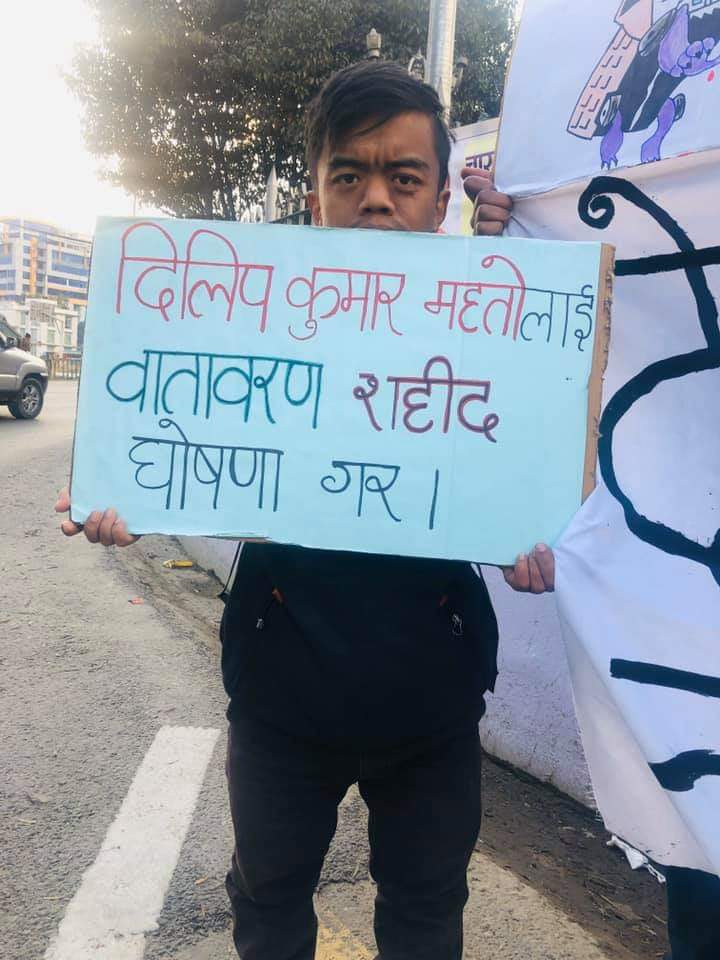 दिलिप कुमार महतोलाई
वातावरण शहीद
घोषणा गर।